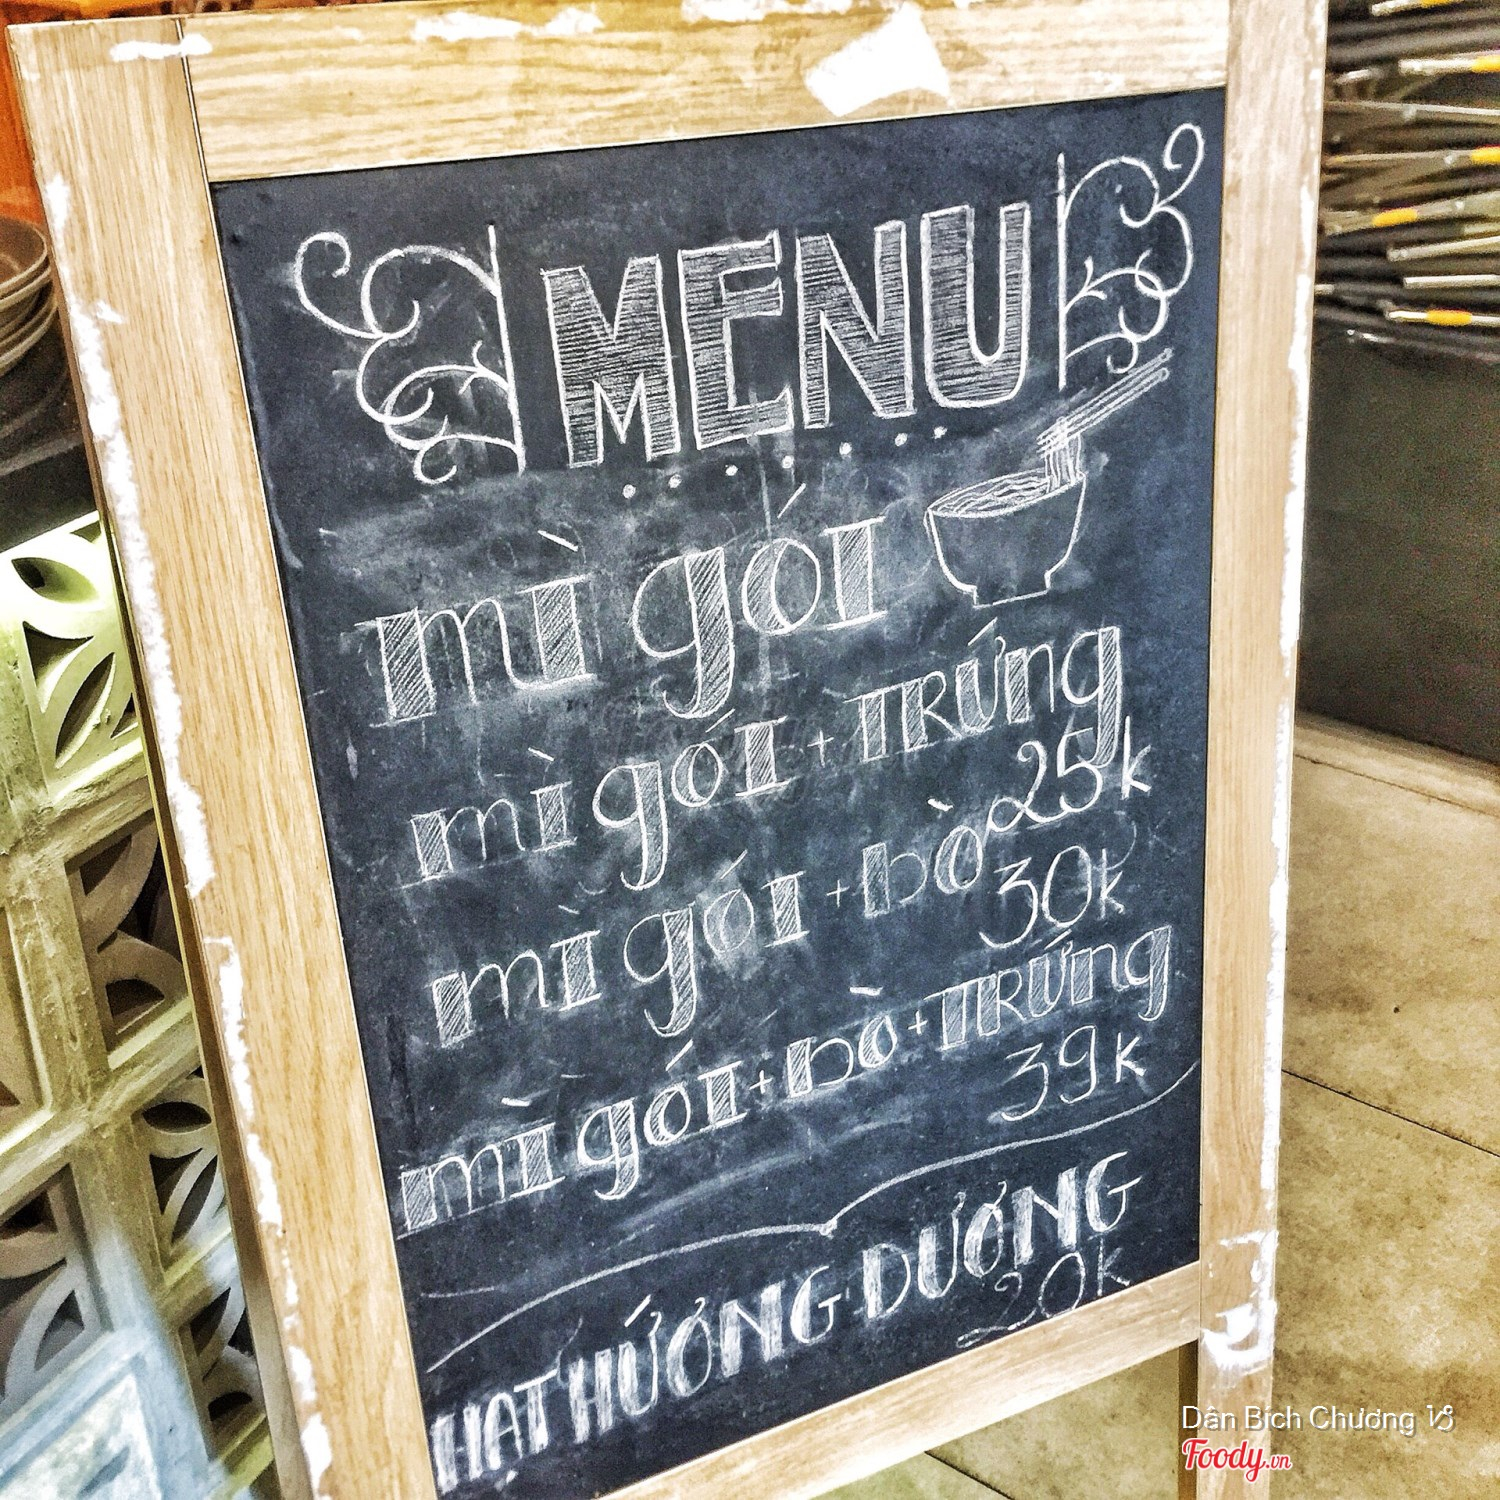 MENU
mì gói
mì gói + TRứng
25k
mì gói + bò
30k
mì gói + bò + TRứng
39k
HẠT HƯỚNG DƯƠNG
20k
Dân Bich Chương ♑
Foody.vn